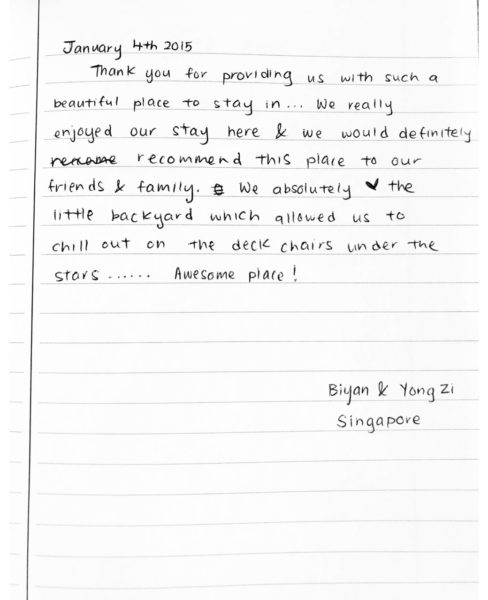 January 4th 2015
Thank you for providing us with such a
beautiful place to stay in... We really
enjoyed our stay here & we would definitely
recommend this place to our
friends & family. We absolutely ♥ the
little backyard which allowed us to
chill out on the deck chairs under the
stars ...... Awesome place!
Biyan & Yong Zi
Singapore